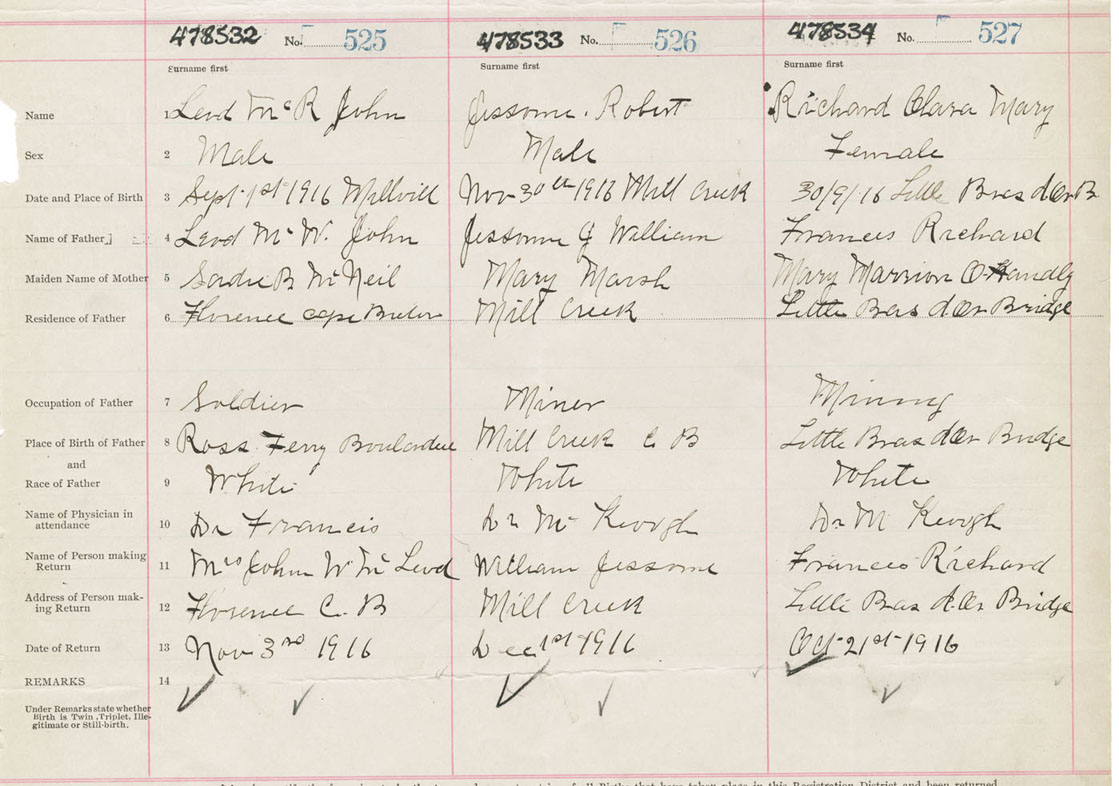 478532 No. 525 478533 No. 526 478534 No. 527
Surname first Surname first Surname first
Name 1 Leod Mc R John Jessome. Robert Richard Clara Mary
Sex 2 Male Male Female
Date and Place of Birth 3 Sept 1st 1916 Millvill Nov 30th 1916 Mill Creek 30/9/16 Little Bras d'Or B
Name of Father 4 Leod Mc W. John Jessome J William Frances Richard
Maiden Name of Mother 5 Sadie B McNeil Mary Marsh Mary Marrion O-Handly
Residence of Father 6 Florence cape Breton Mill Creek Little Bras d'Or Bridge
Occupation of Father 7 Soldier Miner Mining
Place of Birth of Father 8 Ross Ferry Boulardee Mill Creek C B Little Bras d'Or Bridge
and
Race of Father 9 White White White
Name of Physician in
attendance 10 Dr Francis Dr Mc Keough Dr Mc Keough
Name of Person making
Return 11 Mrs John W Mc Leod William Jessome Frances Richard
Address of Person mak-
ing Return 12 Florence C. B Mill Creek Little Bras d'Or Bridge
Date of Return 13 Nov 3rd 1916 Dec 1st 1916 Oct 21st 1916
REMARKS 14
Under Remarks state whether
Birth is Twin, Triplet, Ille-
gitimate or Still-birth.
of all Births that have taken place in this Registration District and been returned